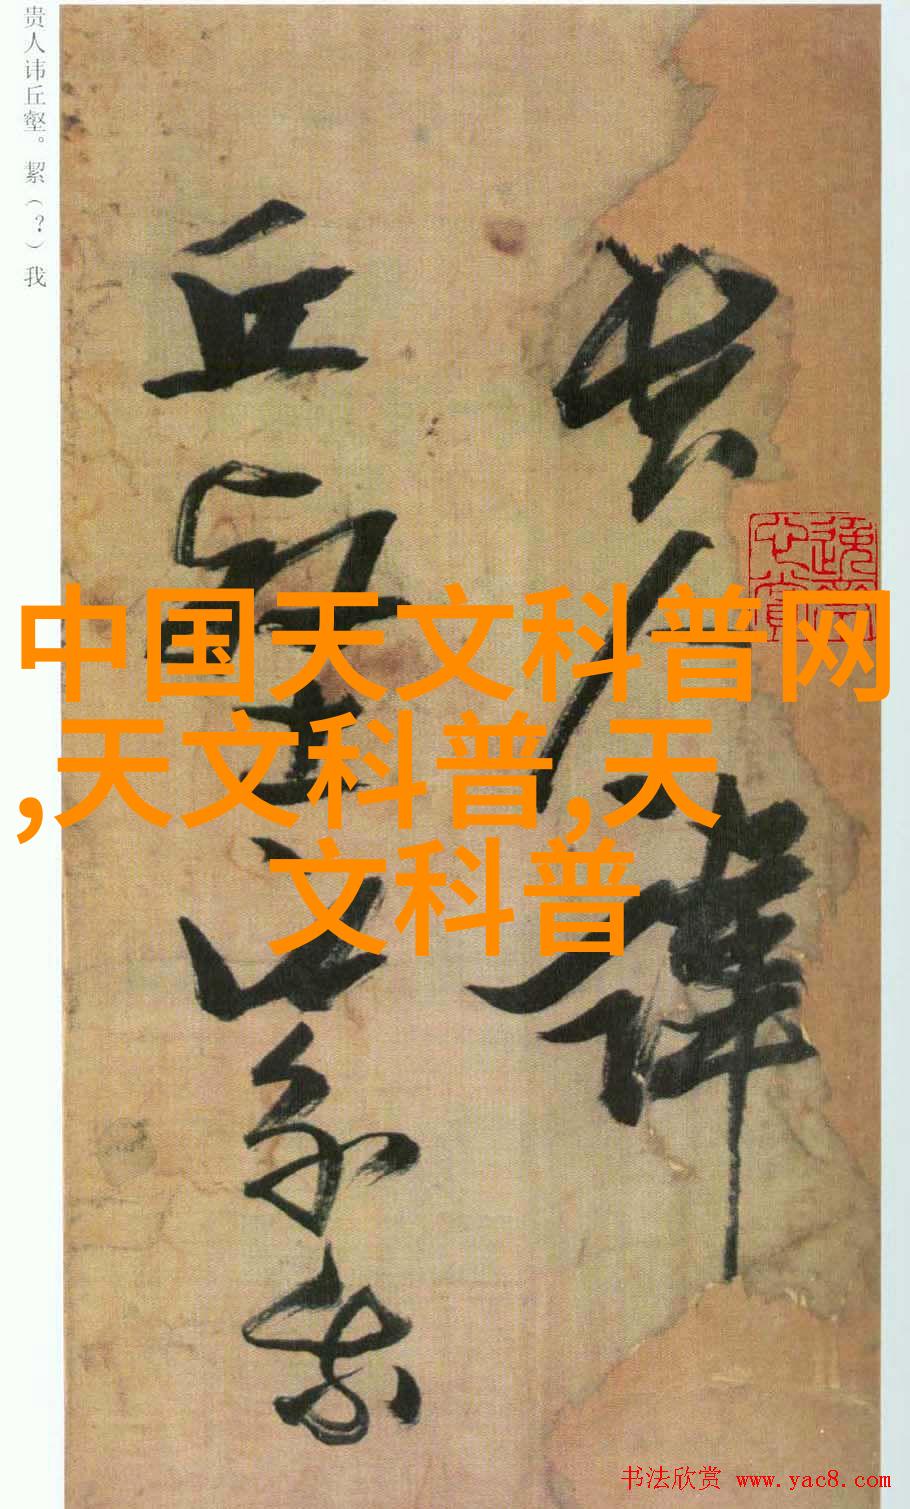 贵人讳丘壑。絜（？）我
贵人讳
丘壑絜我
中国天文科普网
,天文科普,天
文科普
书法欣赏 www.yac8.com